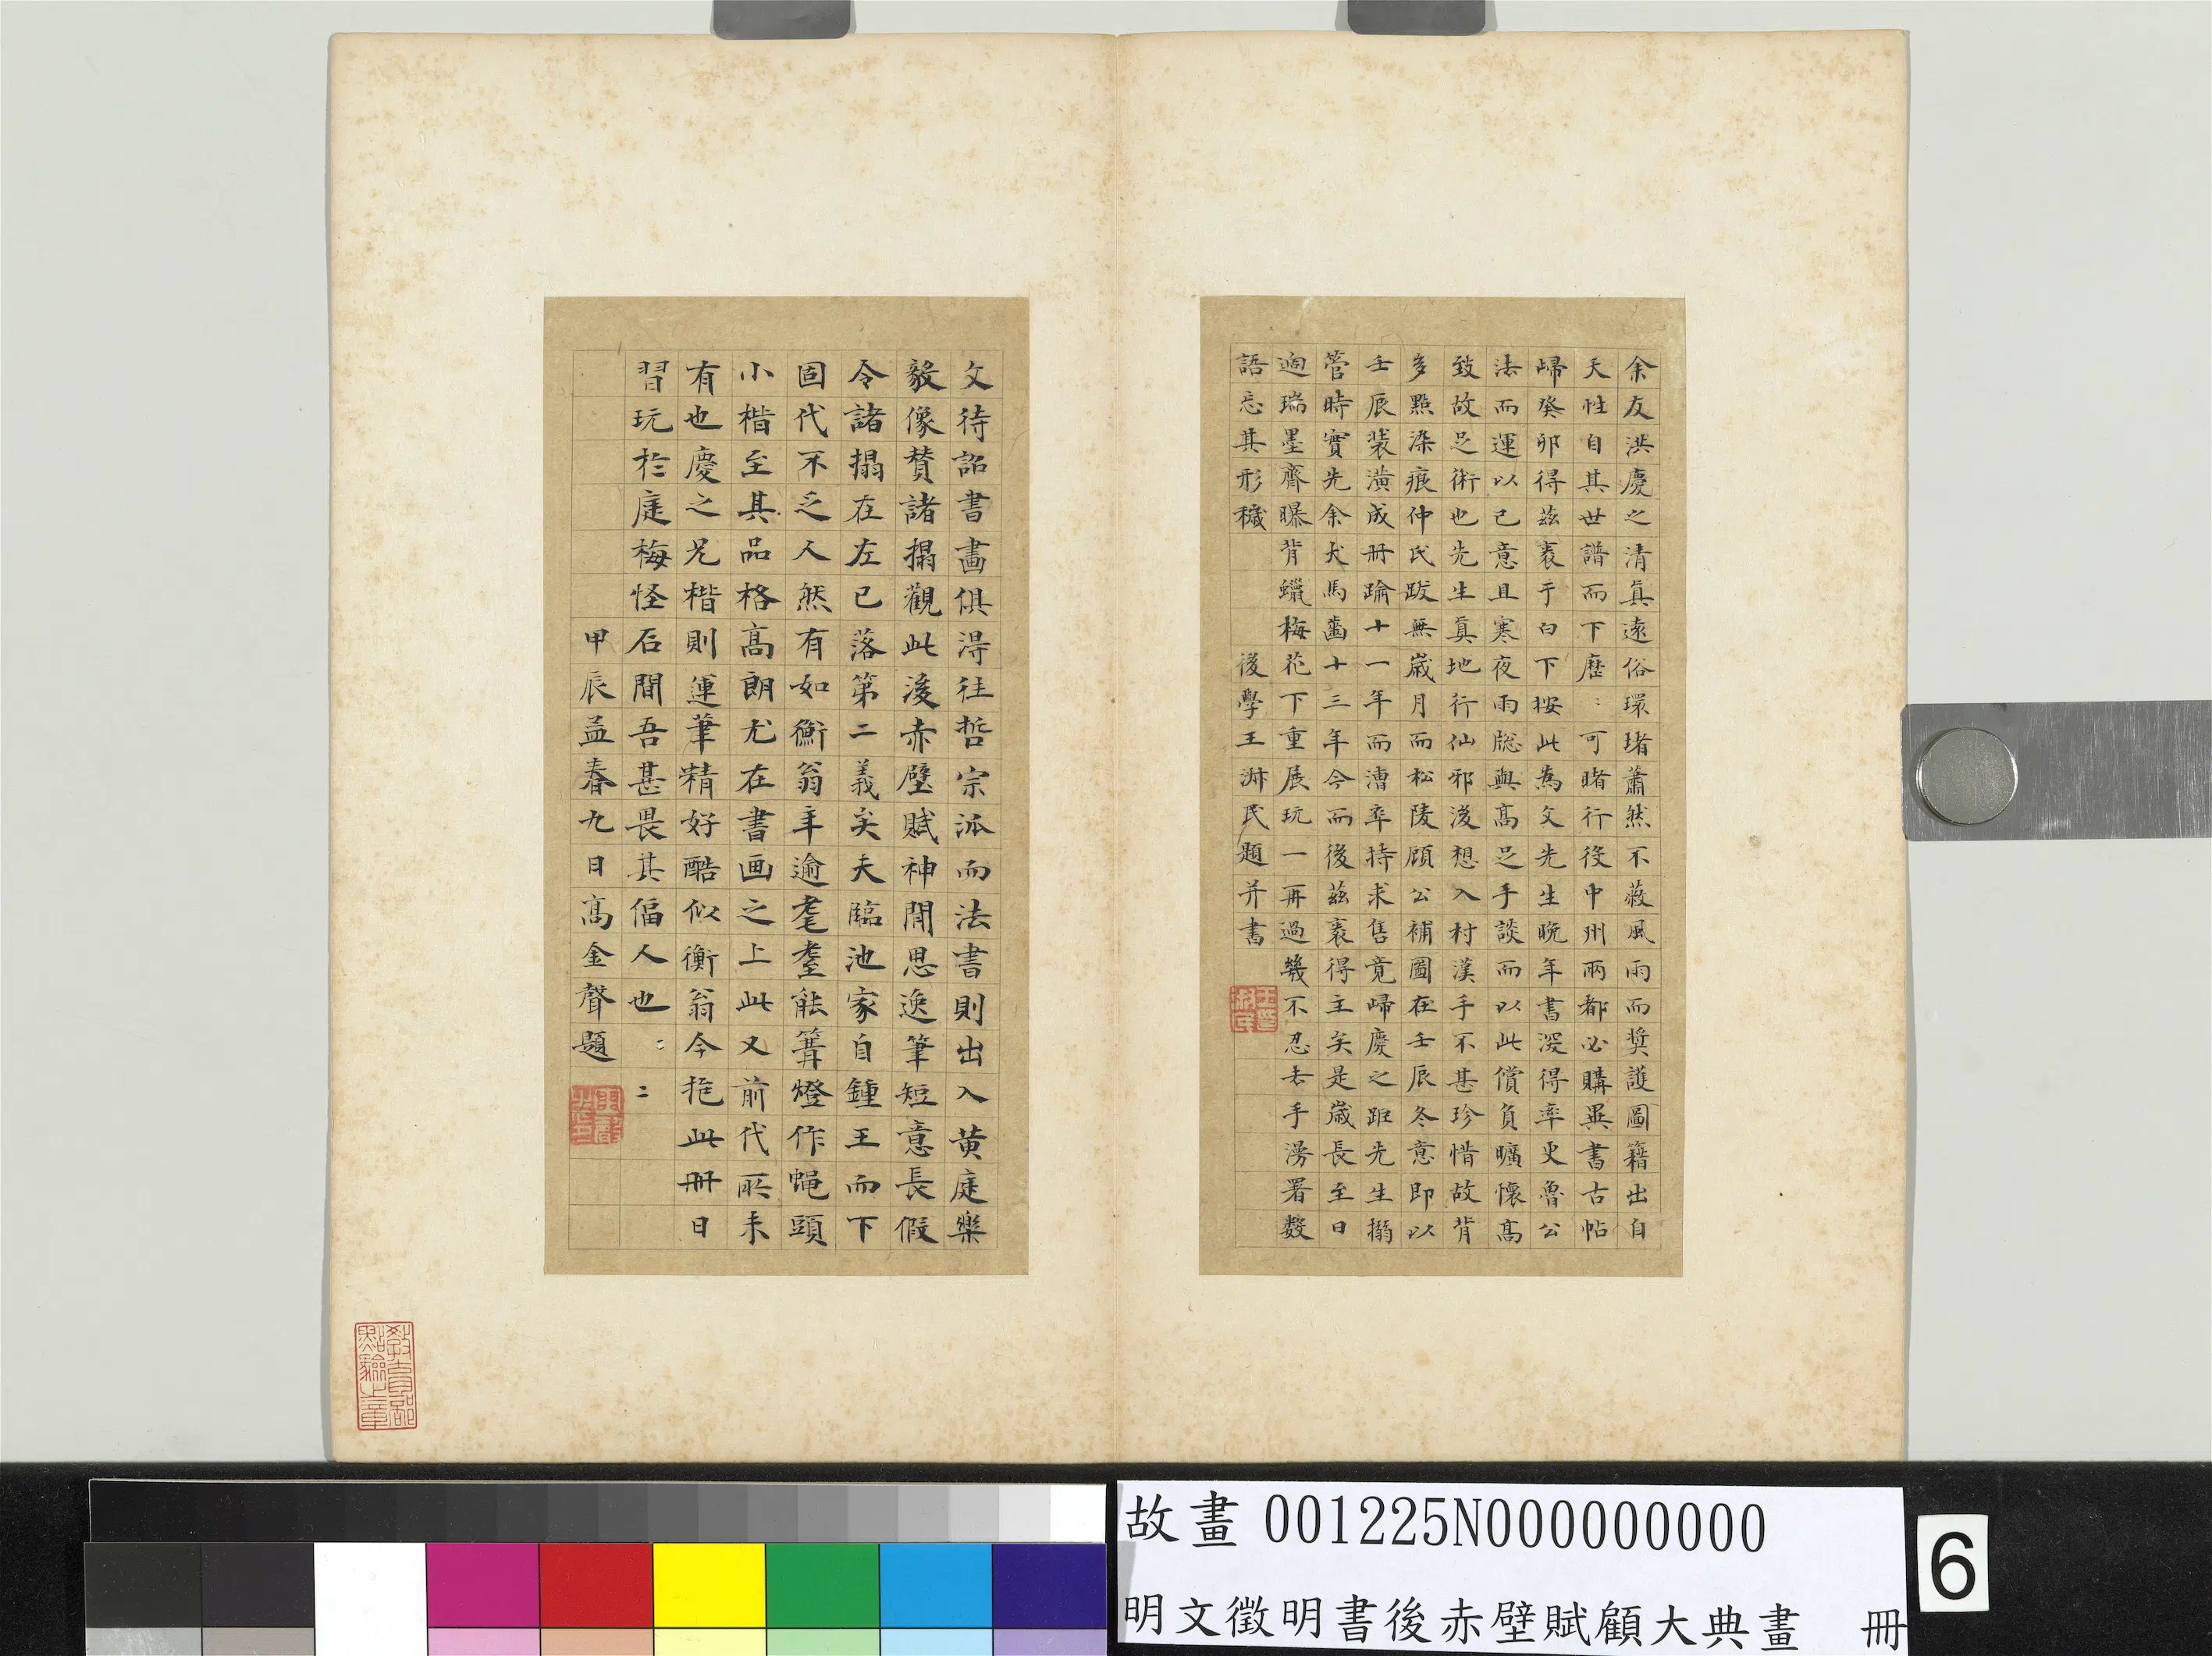 余友洪慶之清真遠俗環堵蕭然不蔽風雨而奬護圖籍出自
天性自其世譜而下歷〻可睹行役中州兩都必購異書古帖
歸癸卯得茲袠于白下按此為文先生晚年書深得率更魯公
法而運以己意且寒夜雨牕與高足手談而以此償負曠懷高
致故足術也先生真地行仙邪後想入村漢手不甚珍惜故背
多點染痕仲氏跋無歲月而松陵顧公補圖在壬辰冬意即以
壬辰裝潢成冊踰十一年而漕卒持求售竟歸慶之距先生搦
管時實先余犬馬齒十三年今而後茲袠得主矣是歲長至日
迺瑞墨齋曝背蠟梅花下重展玩一再過幾不忍去手漫署數
語忘其形穢
後學王淋民題并書
文待詔書畫俱得往哲宗派而法書則出入黃庭樂
毅像贊諸搨觀此後赤壁賦神閒思逸筆短意長假
令諸搨在左已落第二義矣夫臨池家自鍾王而下
固代不乏人然有如衡翁年逾耄耋能篝燈作蝇頭
小楷至其品格高朗尤在書画之上此又前代所未
有也慶之兄楷則運筆精好酷似衡翁今抱此冊日
習玩於庭梅怪石間吾甚畏其偪人也〻〻
甲辰孟春九日高金聲題
教育部
點驗之章
故畫 001225N000000000
明文徵明書後赤壁賦顧大典畫 冊
6